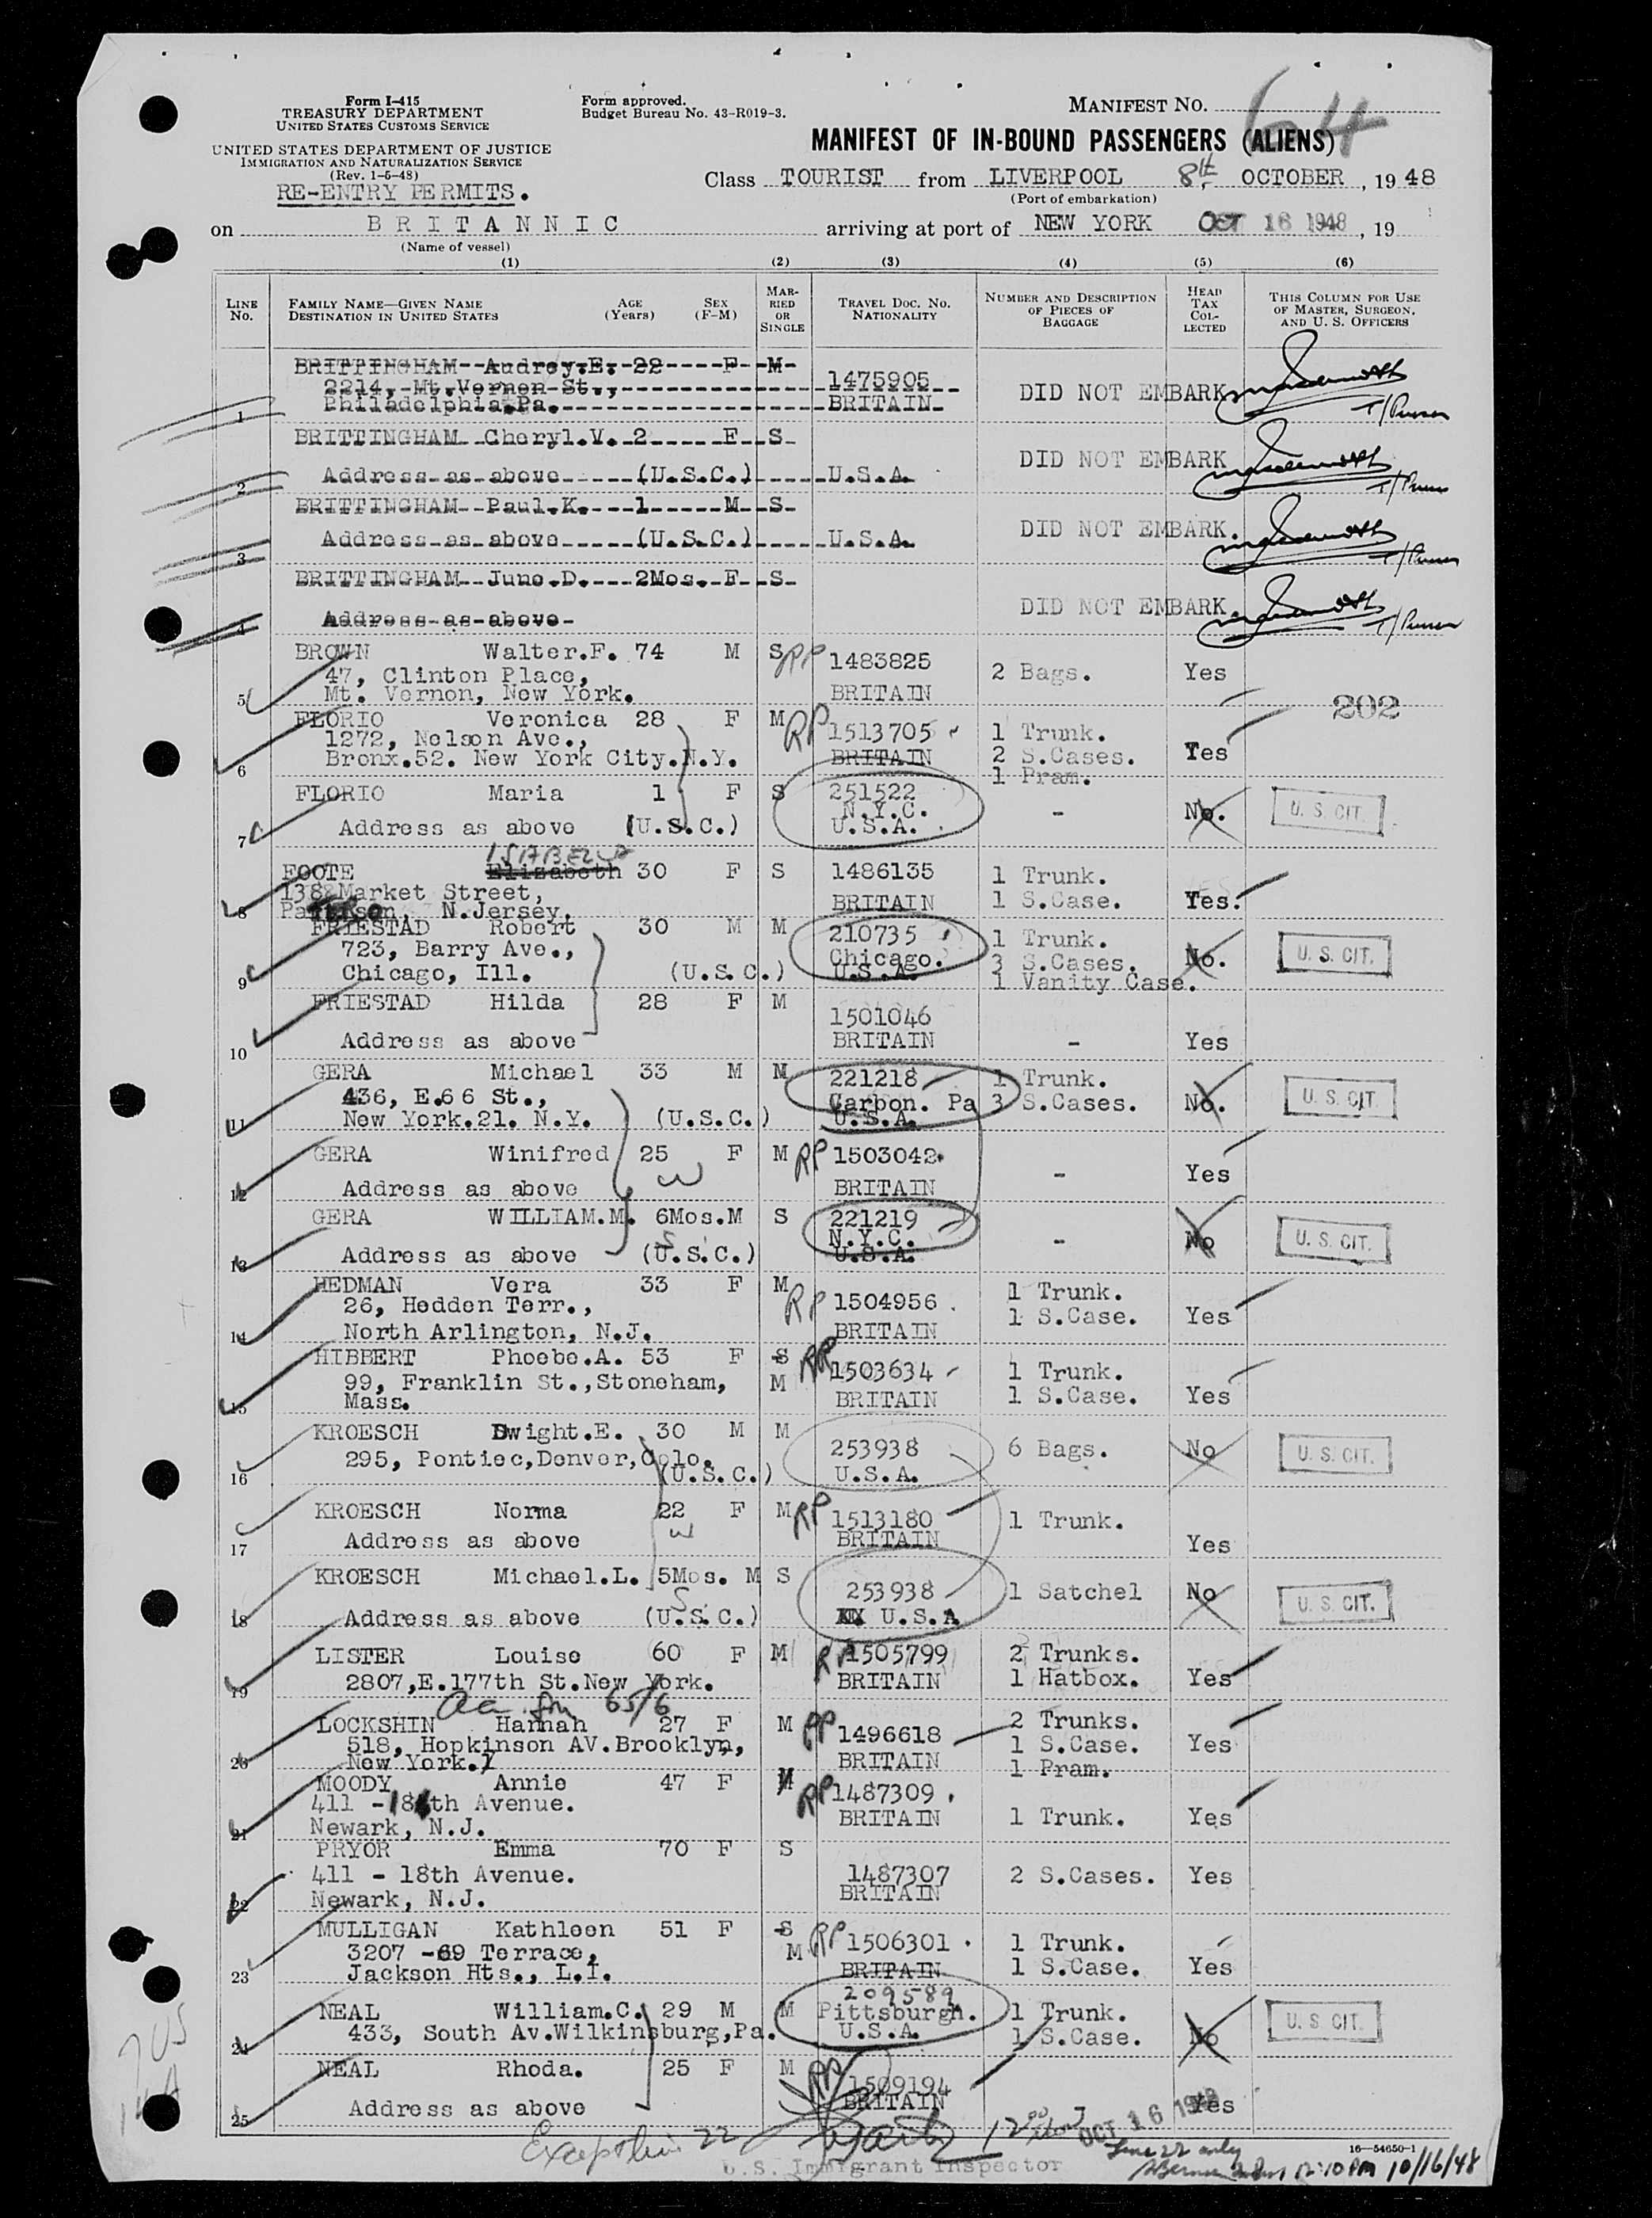 Form I-415
TREASURY DEPARTMENT
UNITED STATES CUSTOMS SERVICE
UNITED STATES DEPARTMENT OF JUSTICE
IMMIGRATION AND NATURALIZATION SERVICE
(Rev. 1-5-48)
RE-ENTRY PERMITS.
Form approved.
Budget Bureau No. 43-R019-3.
MANIFEST NO. 64
MANIFEST OF IN-BOUND PASSENGERS (ALIENS)
Class TOURIST from LIVERPOOL 8th OCTOBER, 1948
(Port of embarkation)
on BRITANNIC arriving at port of NEW YORK OCT 16 1948, 19
(Name of vessel)
(1) (2) (3) (4) (5) (6)
LINE No. FAMILY NAME—GIVEN NAME DESTINATION IN UNITED STATES AGE (Years) SEX (F-M) MARRIED OR SINGLE TRAVEL DOC. NO. NATIONALITY NUMBER AND DESCRIPTION OF PIECES OF BAGGAGE HEAD TAX COLLECTED THIS COLUMN FOR USE OF MASTER, SURGEON, AND U. S. OFFICERS
BRITTINGHAM Audrey.E. 22 F M
2214, Mt.Vernon St., 1475905
1 Philadelphia.Pa. BRITAIN DID NOT EMBARK T/Purser
BRITTINGHAM Cheryl.V. 2 F S
2 Address as above (U.S.C.) U.S.A. DID NOT EMBARK T/Purser
BRITTINGHAM Paul.K. 1 M S
3 Address as above (U.S.C.) U.S.A. DID NOT EMBARK. T/Purser
BRITTINGHAM June.D. 2Mos. F S
4 Address as above DID NOT EMBARK. T/Purser
BROWN Walter.F. 74 M S RP 1483825 2 Bags. Yes
47, Clinton Place,
5 Mt. Vernon, New York. BRITAIN
202
FLORIO Veronica 28 F M RP 1513705 1 Trunk.
1272, Nelson Ave., 2 S.Cases. Yes
6 Bronx.52. New York City.N.Y. BRITAIN 1 Pram.
FLORIO Maria 1 F S 251522
N.Y.C.
7 Address as above (U.S.C.) U.S.A. - No. U. S. CIT.
ISABELLA
FOOTE Elizabeth 30 F S 1486135 1 Trunk.
138 Market Street,
8 N.Jersey. BRITAIN 1 S.Case. Yes.
FRIESTAD Robert 30 M M 210735 1 Trunk.
723, Barry Ave., Chicago. 3 S.Cases. No. U. S. CIT.
9 Chicago, Ill. (U.S.C.) U.S.A. 1 Vanity Case.
FRIESTAD Hilda 28 F M 1501046
10 Address as above BRITAIN - Yes
GERA Michael 33 M M 221218 1 Trunk.
436, E.66 St., Carbon. Pa 3 S.Cases. No. U. S. CIT.
11 New York.21. N.Y. (U.S.C.) U.S.A.
GERA Winifred 25 F M RP 1503042 - Yes
12 Address as above W BRITAIN
GERA WILLIAM.M. 6Mos.M S 221219
N.Y.C.
13 Address as above S (U.S.C.) U.S.A. - No U. S. CIT.
HEDMAN Vera 33 F M RP 1504956 1 Trunk.
26, Hedden Terr., 1 S.Case. Yes
14 North Arlington, N.J. BRITAIN
HIBBERT Phoebe.A. 53 F S RP 1503634 1 Trunk.
99, Franklin St.,Stoneham, M BRITAIN 1 S.Case. Yes
15 Mass.
KROESCH Dwight.E. 30 M M 253938 6 Bags. No U. S. CIT.
295, Pontiec,Denver,Colo.
16 (U.S.C.) U.S.A.
KROESCH Norma 22 F M RP 1513180 1 Trunk.
17 Address as above W BRITAIN Yes
KROESCH Michael.L. 5Mos. M S 253938 1 Satchel No U. S. CIT.
18 Address as above S (U.S.C.) U.S.A
LISTER Louise 60 F M RP 1505799 2 Trunks.
19 2807,E.177th St.New York. BRITAIN 1 Hatbox. Yes
65/6
LOCKSHIN Hannah 27 F M RP 1496618 2 Trunks.
518, Hopkinson AV.Brooklyn, 1 S.Case. Yes
20 New York.7 BRITAIN 1 Pram.
MOODY Annie 47 F M RP 1487309
411 - 18th Avenue. BRITAIN 1 Trunk. Yes
21 Newark, N.J.
PRYOR Emma 70 F S
411 - 18th Avenue. 1487307 2 S.Cases. Yes
22 Newark, N.J. BRITAIN
MULLIGAN Kathleen 51 F S RP 1506301 1 Trunk.
3207 -69 Terrace, M 1 S.Case. Yes
23 Jackson Hts., L.I. BRITAIN
209589
NEAL William.C. 29 M M Pittsburgh. 1 Trunk.
24 433, South Av.Wilkinsburg,Pa. U.S.A. 1 S.Case. No U. S. CIT.
NEAL Rhoda. 25 F M RP 1509194
25 Address as above BRITAIN Yes
OCT 16 1948
Except line 22
U.S. Immigrant Inspector
Line 22 only
12:10 PM 10/16/48
16—54650-1